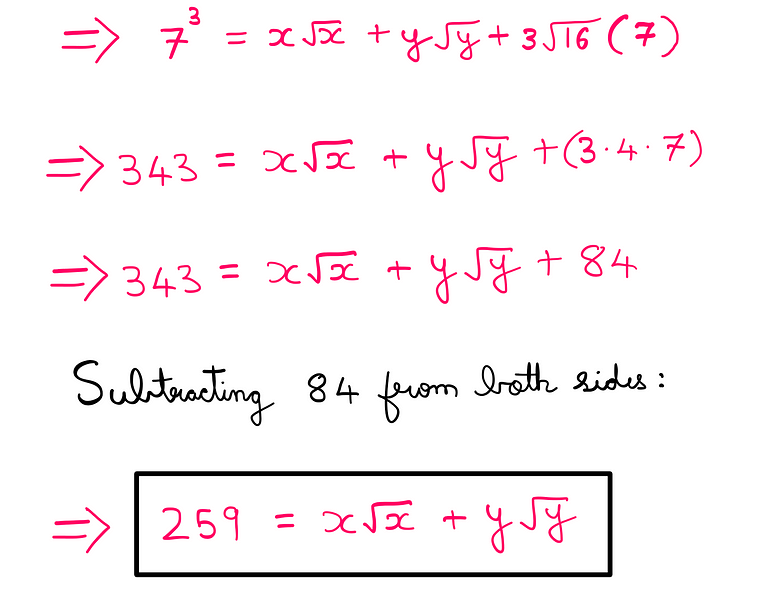 ⇒ 7³ = x√x + y√y + 3√16 (7)
⇒ 343 = x√x + y√y + (3·4·7)
⇒ 343 = x√x + y√y + 84
Subtracting 84 from both sides:
⇒ 259 = x√x + y√y